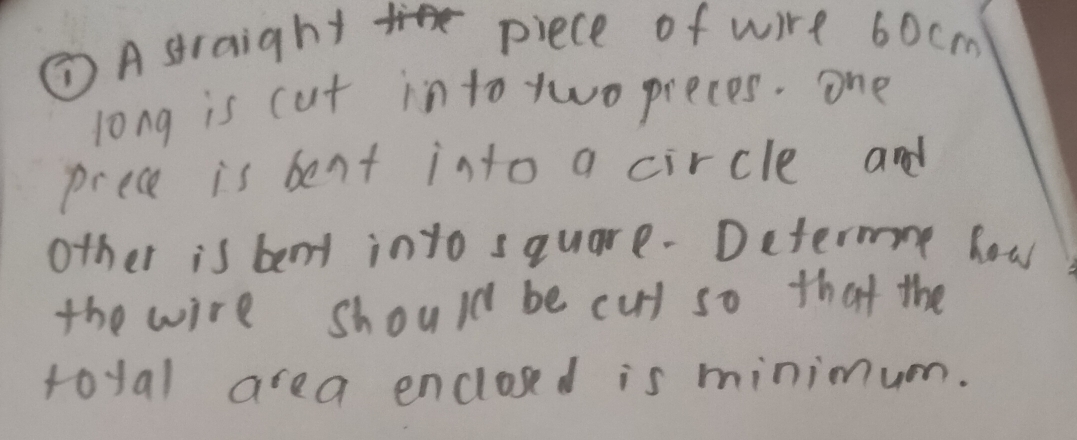 ① A straight piece of wire 60cm
long is cut into two pieces. One
piece is bent into a circle and
other is bent into square. Determine how
the wire should be cut so that the
total area enclosed is minimum.